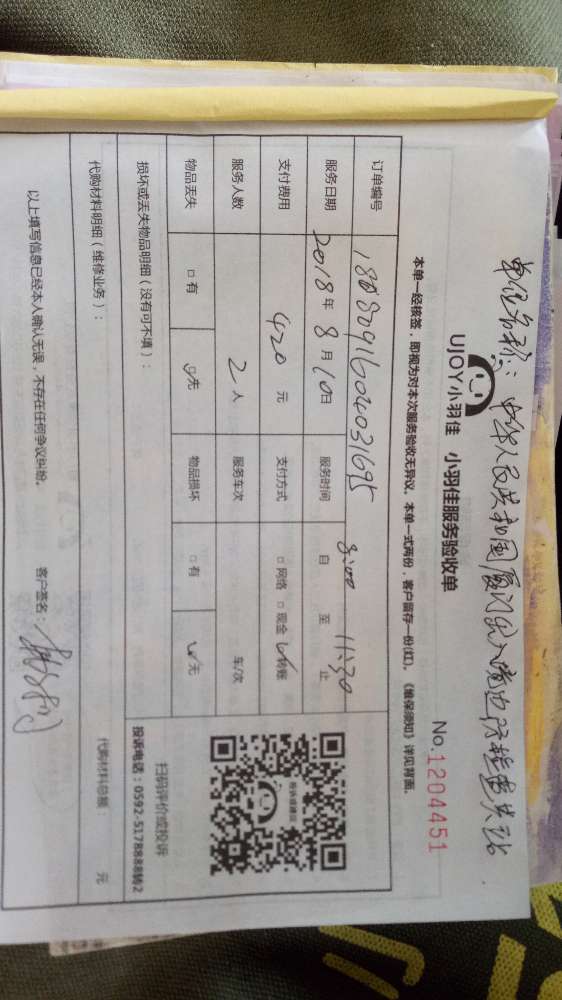 单位名称：中华人民共和国厦门出入境边防检查总站
UJOY小羽佳 小羽佳服务验收单
No.1204451
本单一经核签，即视为对本次服务验收无异议。本单一式两份，客户留存一份(红)。《维保须知》详见背面。
订单编号
服务日期 2018年8月10日 服务时间 自 8:00 至 11:30 止
支付费用 420 元 支付方式 □网络 □现金 ☑转账
服务人数 2 人 服务车次 车/次
物品丢失 □有 ☑无 物品损坏 □有 ☑无
损坏或丢失物品明细（没有可不填）：
扫码评价或投诉
投诉电话：0592-5178888转2
代购材料明细（维修业务）：
代购材料总额： 元
以上填写信息已经本人确认无误，不存在任何争议纠纷。 客户签名：